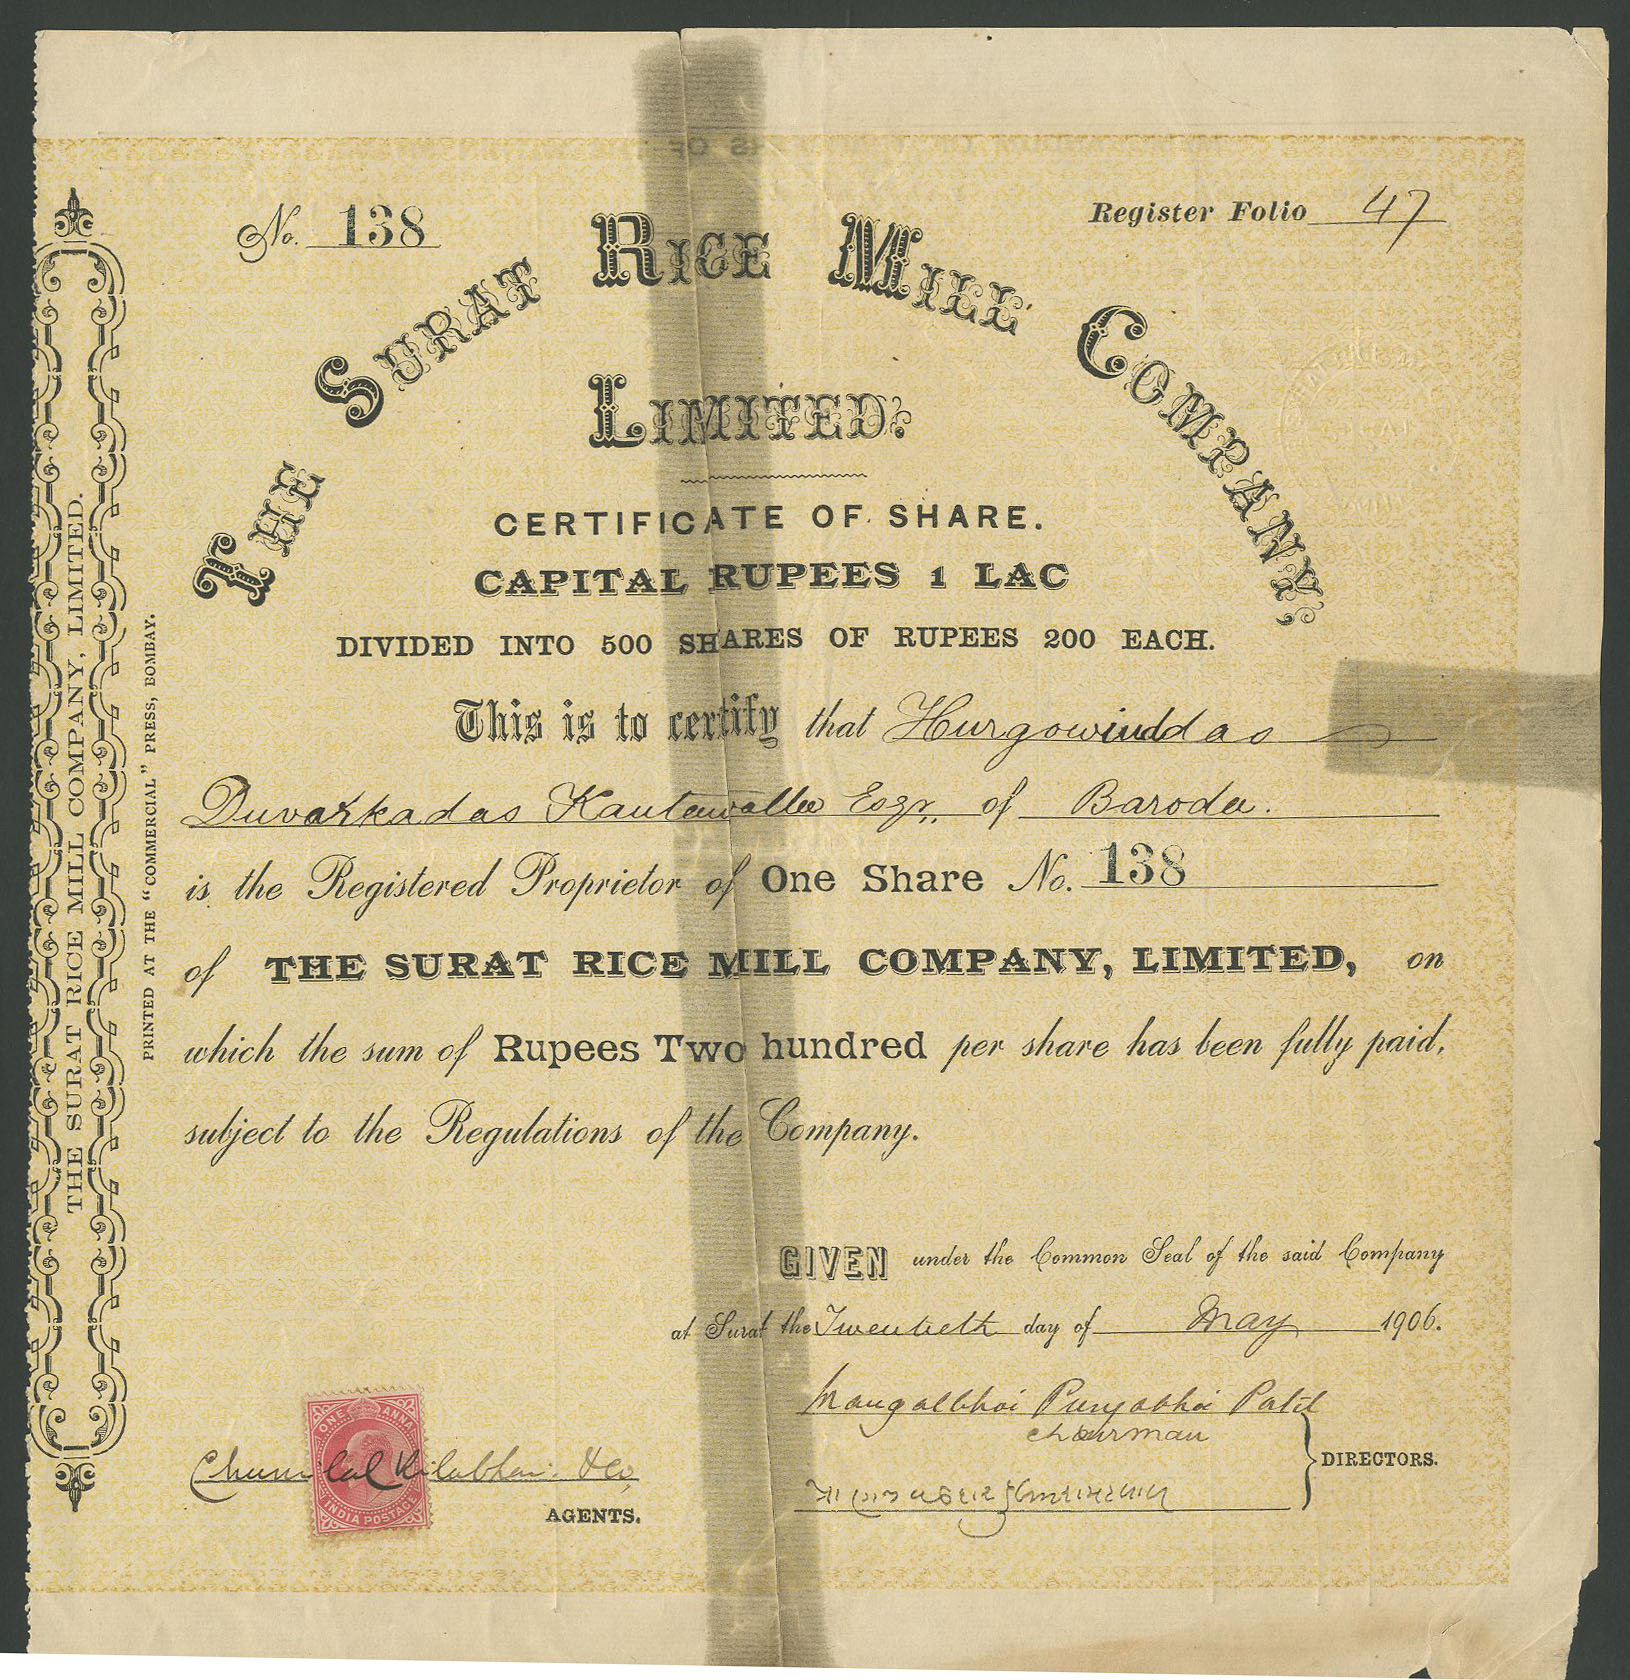 No. 138
Register Folio 47
THE SURAT RICE MILL COMPANY,
LIMITED.
CERTIFICATE OF SHARE.
CAPITAL RUPEES 1 LAC
DIVIDED INTO 500 SHARES OF RUPEES 200 EACH.
This is to certify that Hurgowinddas
Duvarkadas Kantawalla Esqr., of Baroda.
is the Registered Proprietor of One Share No. 138
of THE SURAT RICE MILL COMPANY, LIMITED, on
which the sum of Rupees Two hundred per share has been fully paid,
subject to the Regulations of the Company.
GIVEN under the Common Seal of the said Company
at Surat the Twentieth day of May 1906.
Mangalbhai Punjabhai Patil
Chairman
DIRECTORS.
Chunilal Kilabhai & Co,
AGENTS.
ONE ANNA
INDIA POSTAGE
THE SURAT RICE MILL COMPANY, LIMITED.
PRINTED AT THE "COMMERCIAL" PRESS, BOMBAY.